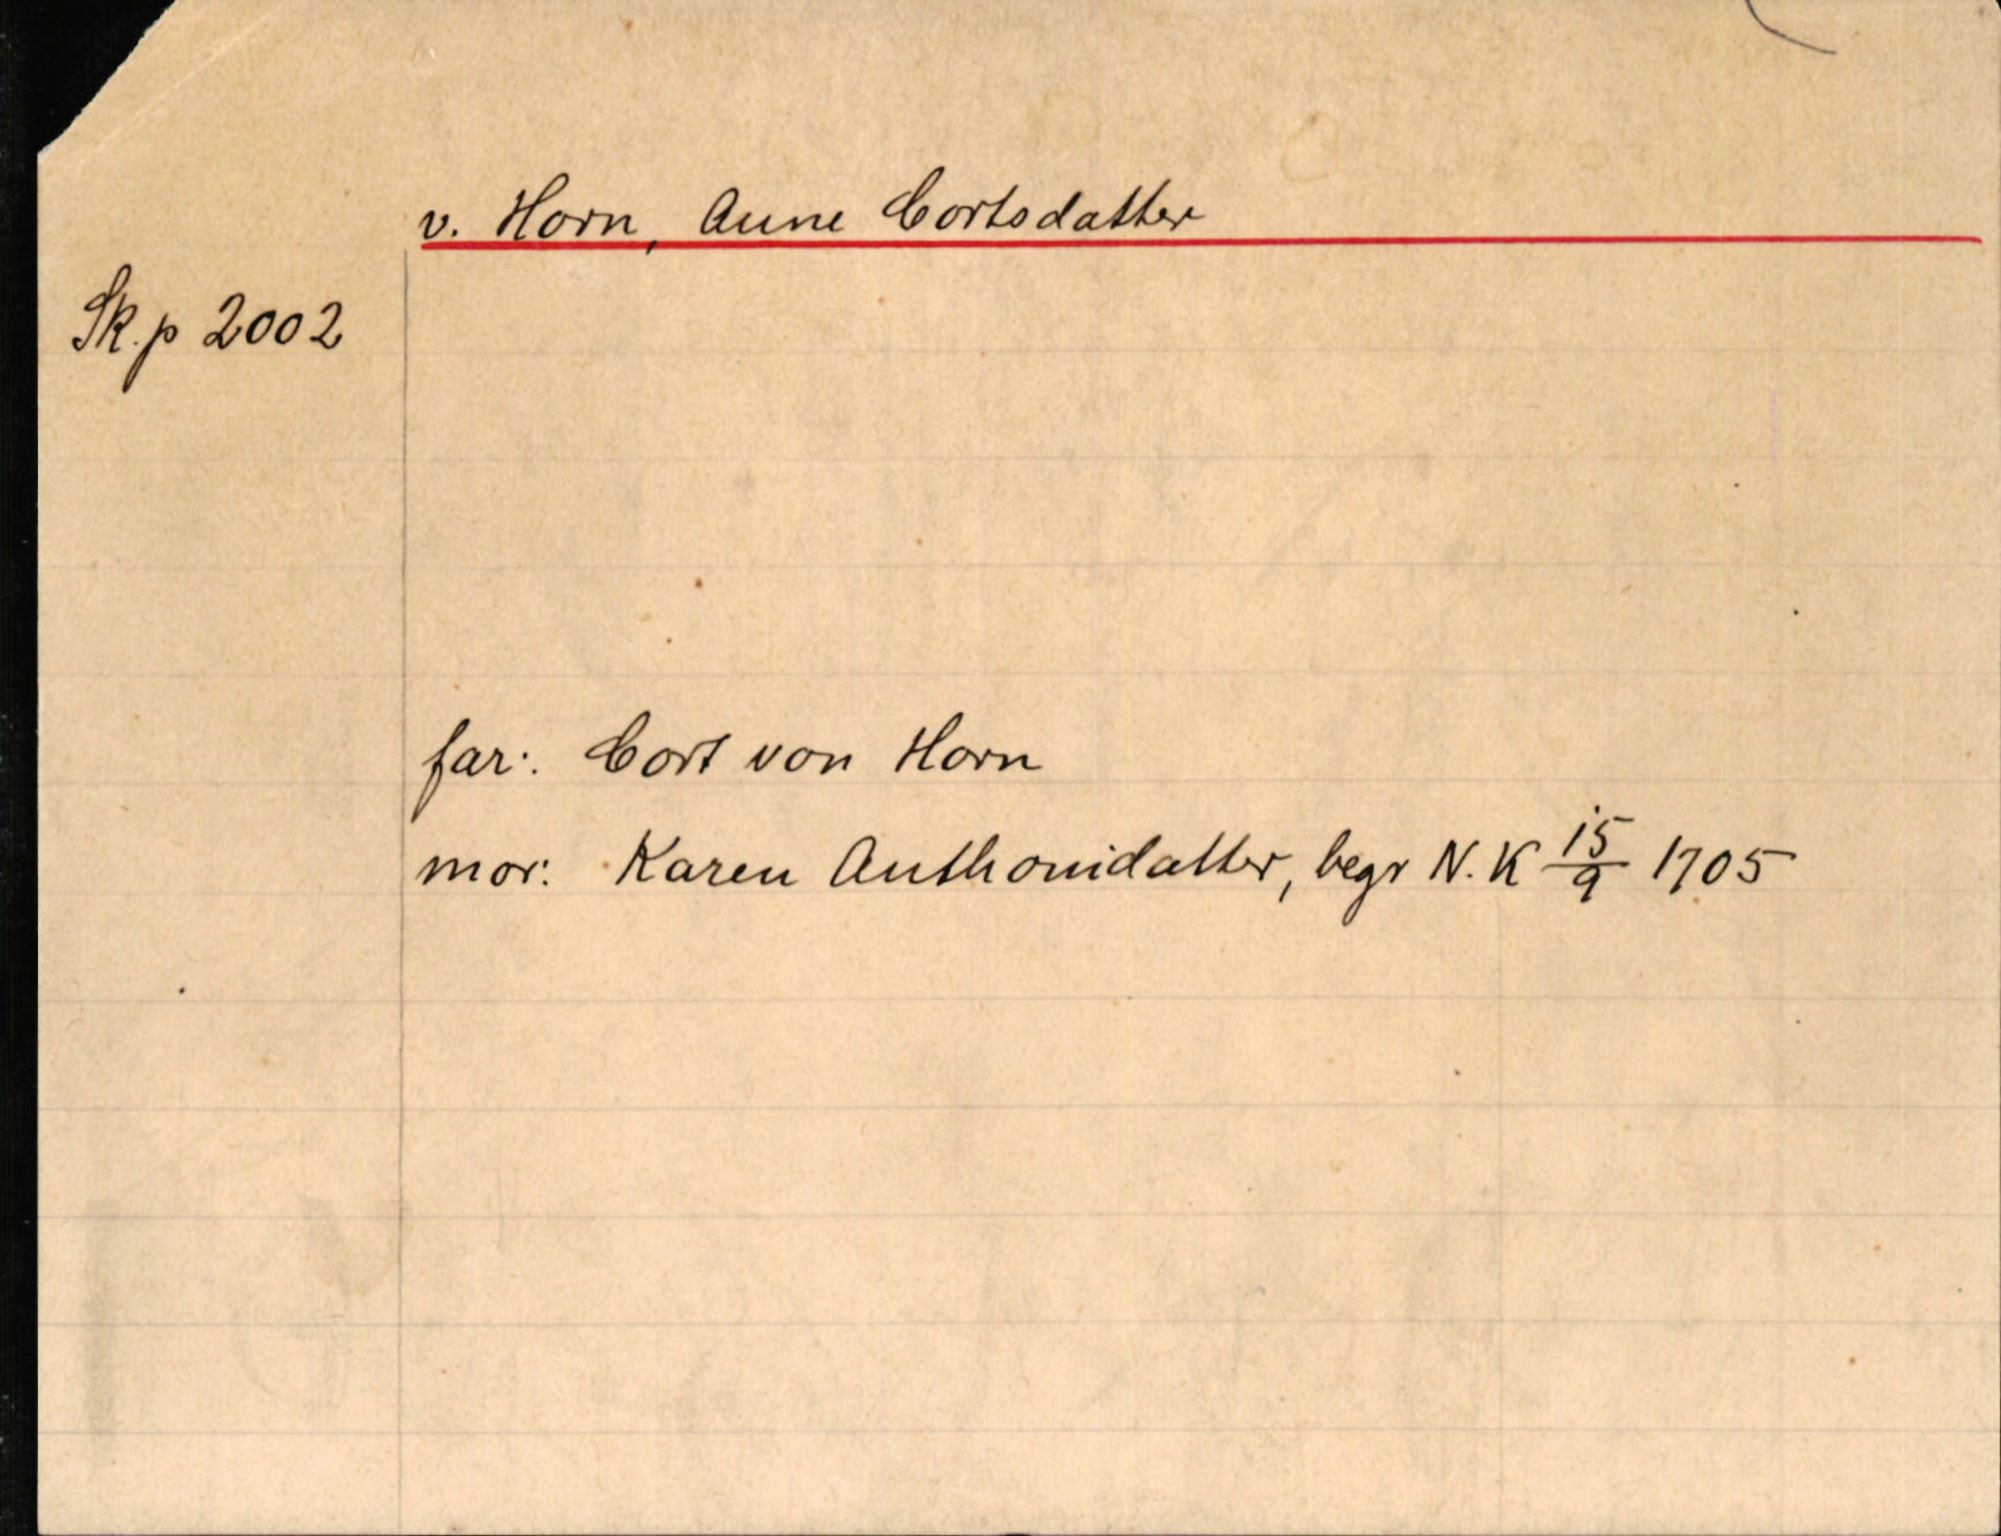 v. Horn, Anne Cortsdatter
Sk. p 2002
far: Cort von Horn
mor: Karen Anthonidatter, begr N. K 15/9 1705